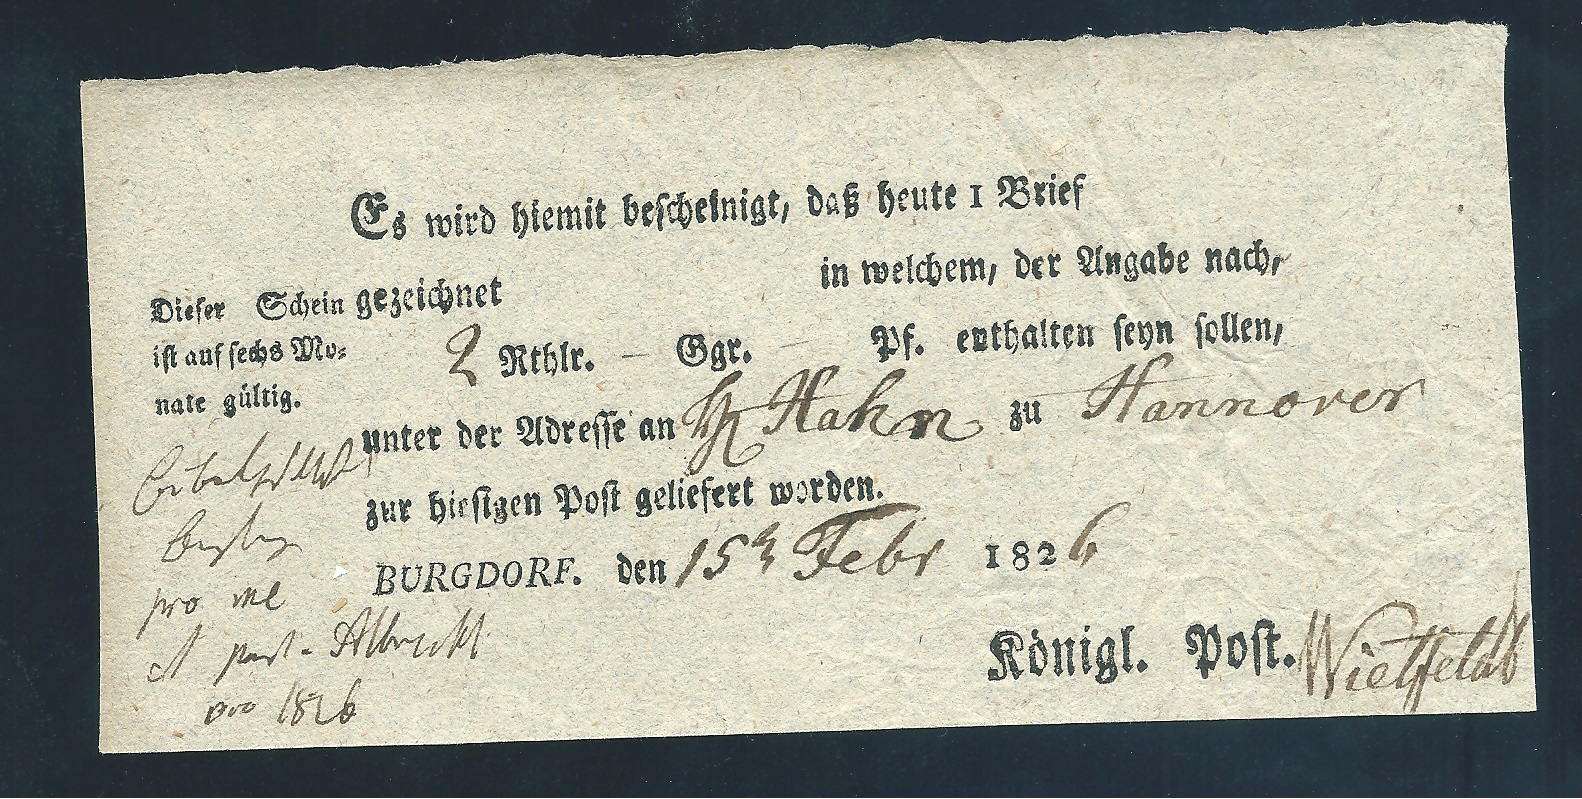 Es wird hiemit bescheinigt, daß heute 1 Brief
gezeichnet in welchem, der Angabe nach,
2 Rthlr. – Ggr. – Pf. enthalten seyn sollen,
unter der Adresse an Hahn zu Hannover
zur hiesigen Post geliefert worden.
BURGDORF. den 15 Febr 1826
Königl. Post.
Dieser Schein
ist auf sechs Mo-
nate gültig.
pro
Albrecht
pro 1826